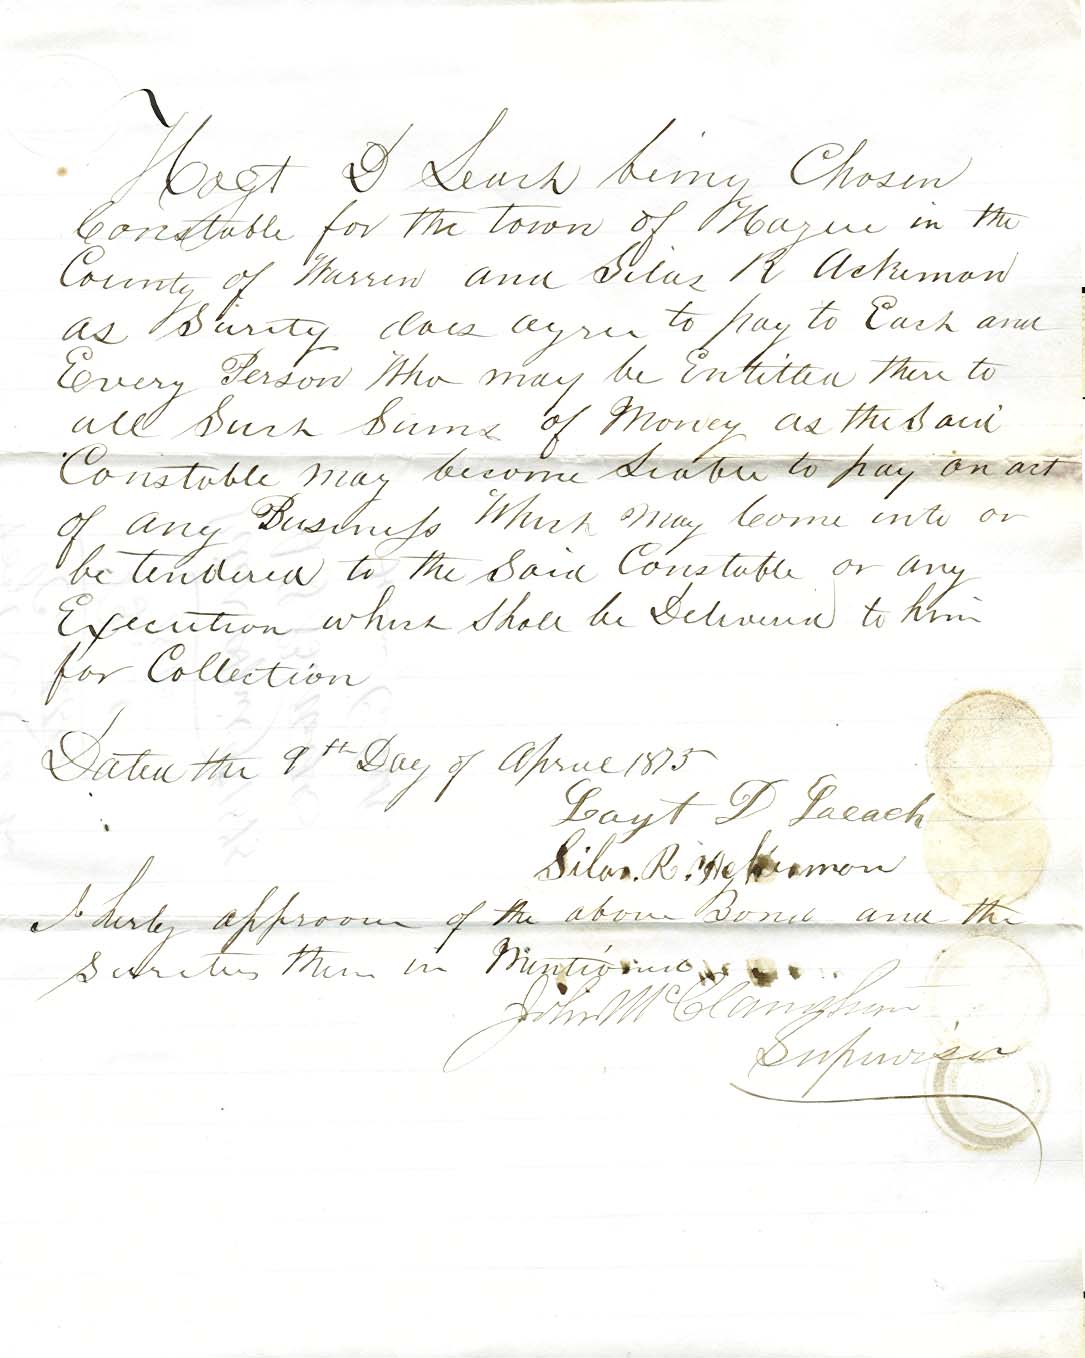 Hogt D Leach being Chosen
Constable for the town of Hague in the
County of Warren and Silas R Ackerman
as Surity does agree to pay to Each and
Every Person Who may be Entitled there to
all Such Sums of Money as the Said
Constable may become Liable to pay on act
of any Business Which may Come into or
be tendered to the Said Constable or any
Execution which shall be Delivered to him
for Collection
Dated the 9th Day of April 1875
Hoyt D Leach
Silas. R. Ackermon
I herby approove of the above Bond and the
Sureties them in Mentioned
John McClanghan
Supervisor